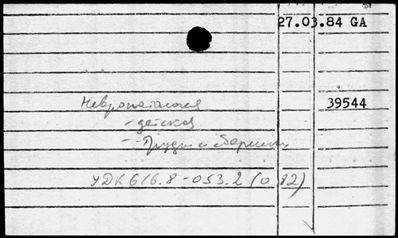 27.03.84 GA
39544
Невропатология
- детская
-- Труды и сборники
УДК 616.8-053.2 (082)